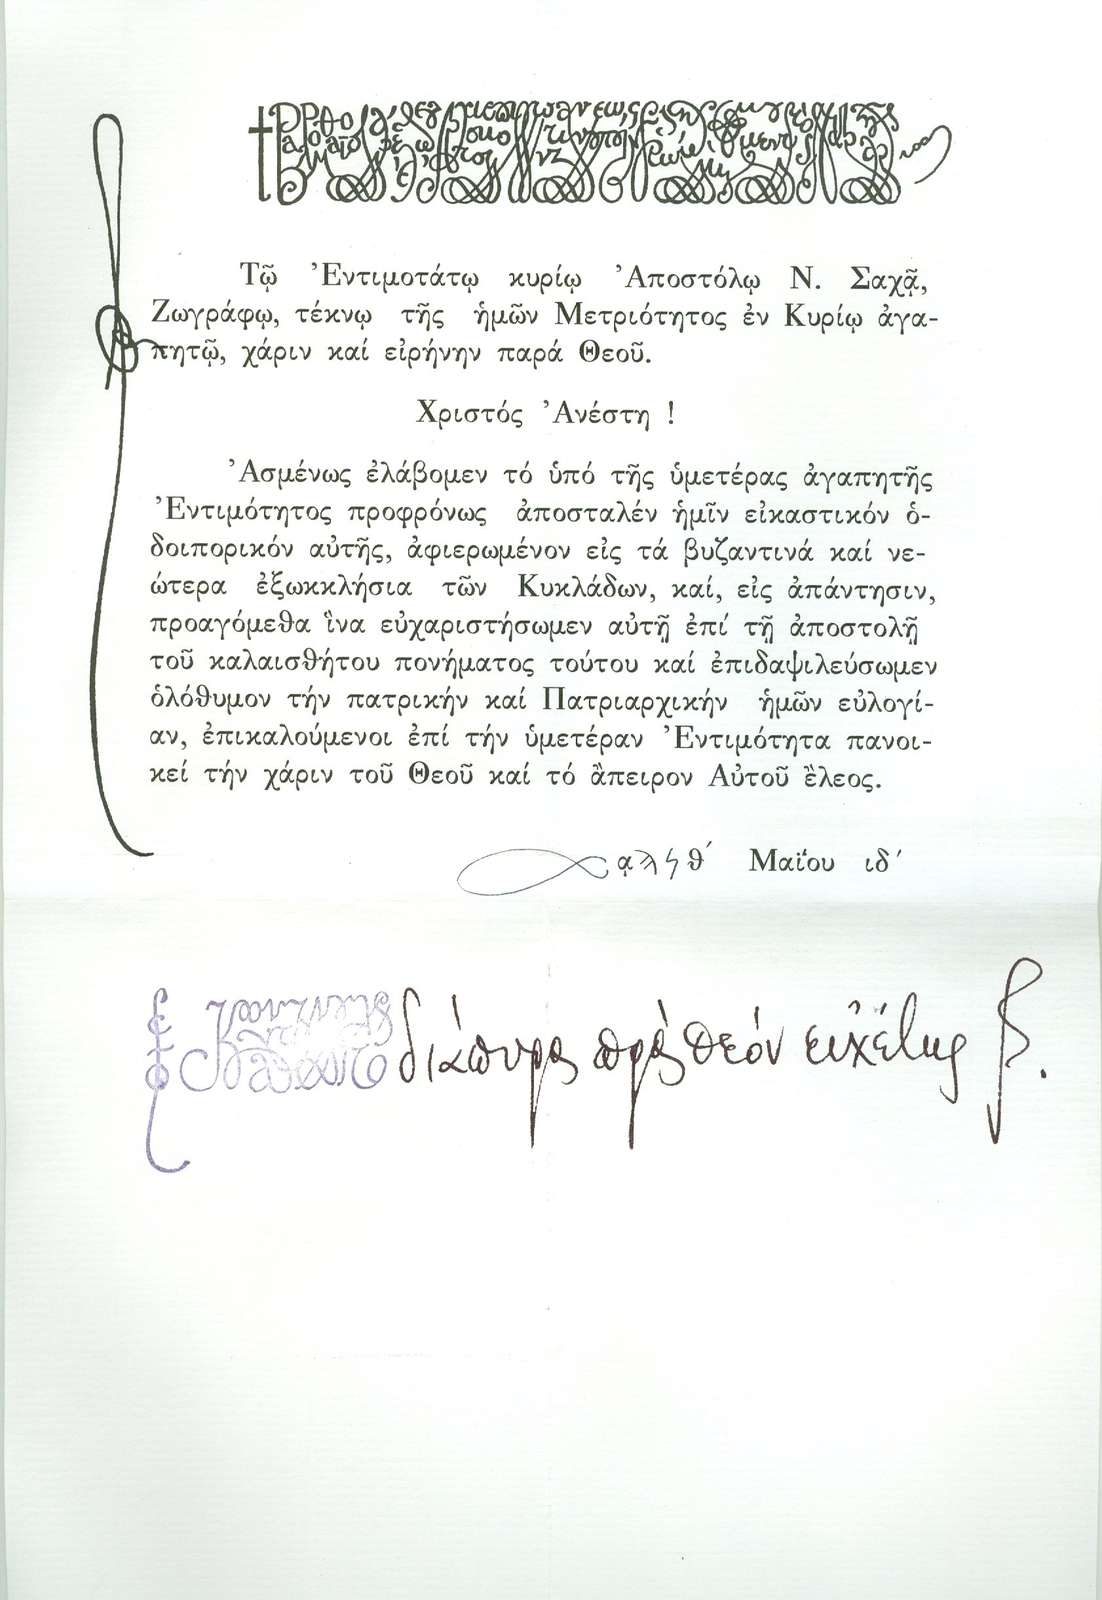 Τῷ Ἐντιμοτάτῳ κυρίῳ Ἀποστόλῳ Ν. Σαχᾷ,
Ζωγράφῳ, τέκνῳ τῆς ἡμῶν Μετριότητος ἐν Κυρίῳ ἀγα-
πητῷ, χάριν καί εἰρήνην παρά Θεοῦ.
Χριστός Ἀνέστη !
Ἀσμένως ἐλάβομεν τό ὑπό τῆς ὑμετέρας ἀγαπητῆς
Ἐντιμότητος προφρόνως ἀποσταλέν ἡμῖν εἰκαστικόν ὁ-
δοιπορικόν αὐτῆς, ἀφιερωμένον εἰς τά βυζαντινά καί νε-
ώτερα ἐξωκκλήσια τῶν Κυκλάδων, καί, εἰς ἀπάντησιν,
προαγόμεθα ἵνα εὐχαριστήσωμεν αὐτῇ ἐπί τῇ ἀποστολῇ
τοῦ καλαισθήτου πονήματος τούτου καί ἐπιδαψιλεύσωμεν
ὁλόθυμον τήν πατρικήν καί Πατριαρχικήν ἡμῶν εὐλογί-
αν, ἐπικαλούμενοι ἐπί τήν ὑμετέραν Ἐντιμότητα πανοι-
κεί τήν χάριν τοῦ Θεοῦ καί τό ἄπειρον Αὐτοῦ ἔλεος.
͵αϡϟθ΄ Μαΐου ιδ΄
διάπυρος πρὸς Θεόν εὐχέτης